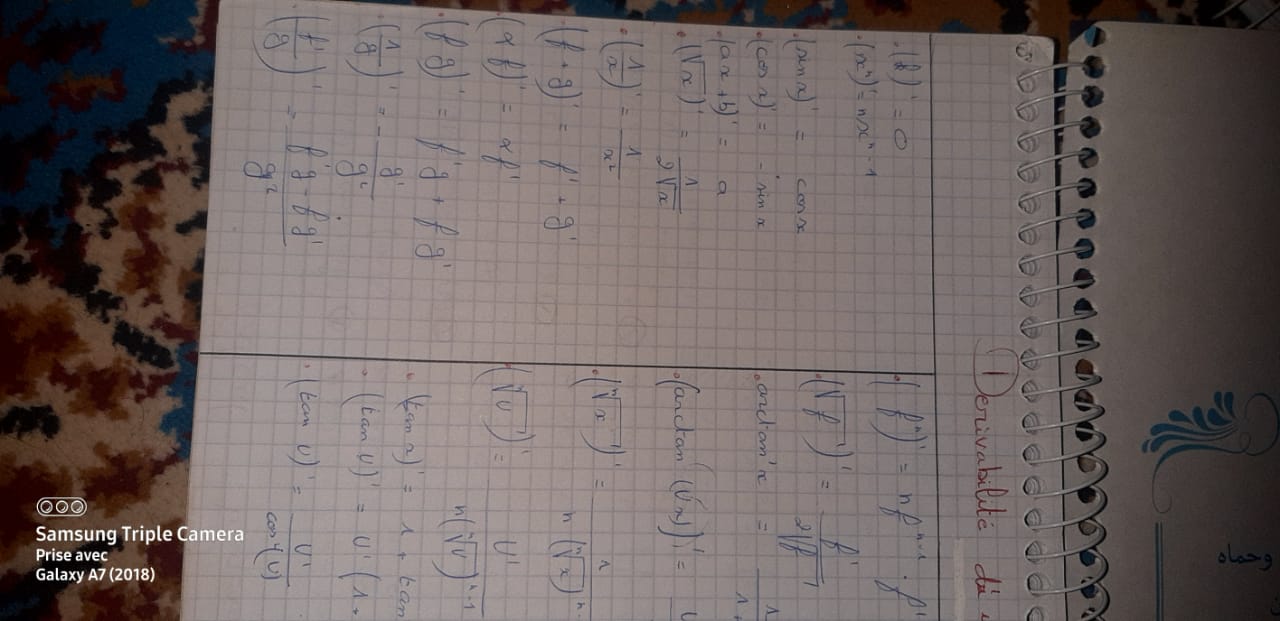 وحماه
Derivabilité d'u
(k)' = 0
(xⁿ)' = nxⁿ⁻¹
(sin x)' = cos x
(cos x)' = - sin x
(ax + b)' = a
(√x)' = 1/2√x
(1/x)' = 1/x²
(f + g)' = f' + g'
(αf)' = αf'
(f g)' = f'g + f g'
(1/g)' = - g'/g²
(f/g)' = f'g - fg'/g²
(fⁿ)' = nfⁿ⁻¹ . f'
(√f)' = f'/2√f
arctan'x = 1/1+
(arctan (Ux))' = U
(ⁿ√x)' = 1/n(ⁿ√x)ⁿ⁻
(ⁿ√U)' = U'/n(ⁿ√U)ⁿ⁻¹
(tan x)' = 1 + tan
(tan U)' = U' (1 +
(tan U)' = U'/cos²(U)
Samsung Triple Camera
Prise avec
Galaxy A7 (2018)